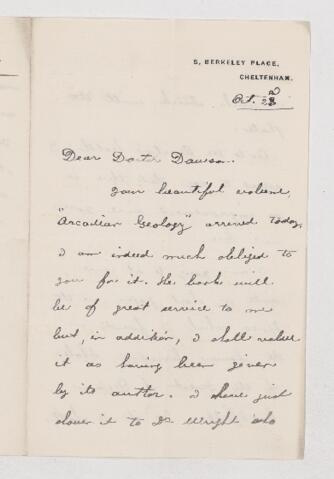 5, BERKELEY PLACE,
CHELTENHAM.
Oct. 22
Dear Doctor Dawson.
Your beautiful volume,
"Arcadian Geology" arrived today.
I am indeed much obliged to
you for it. The book will
be of great service to me
but, in addition, I shall value
it as having been given
by its author. I have just
shown it to Dr Wright who